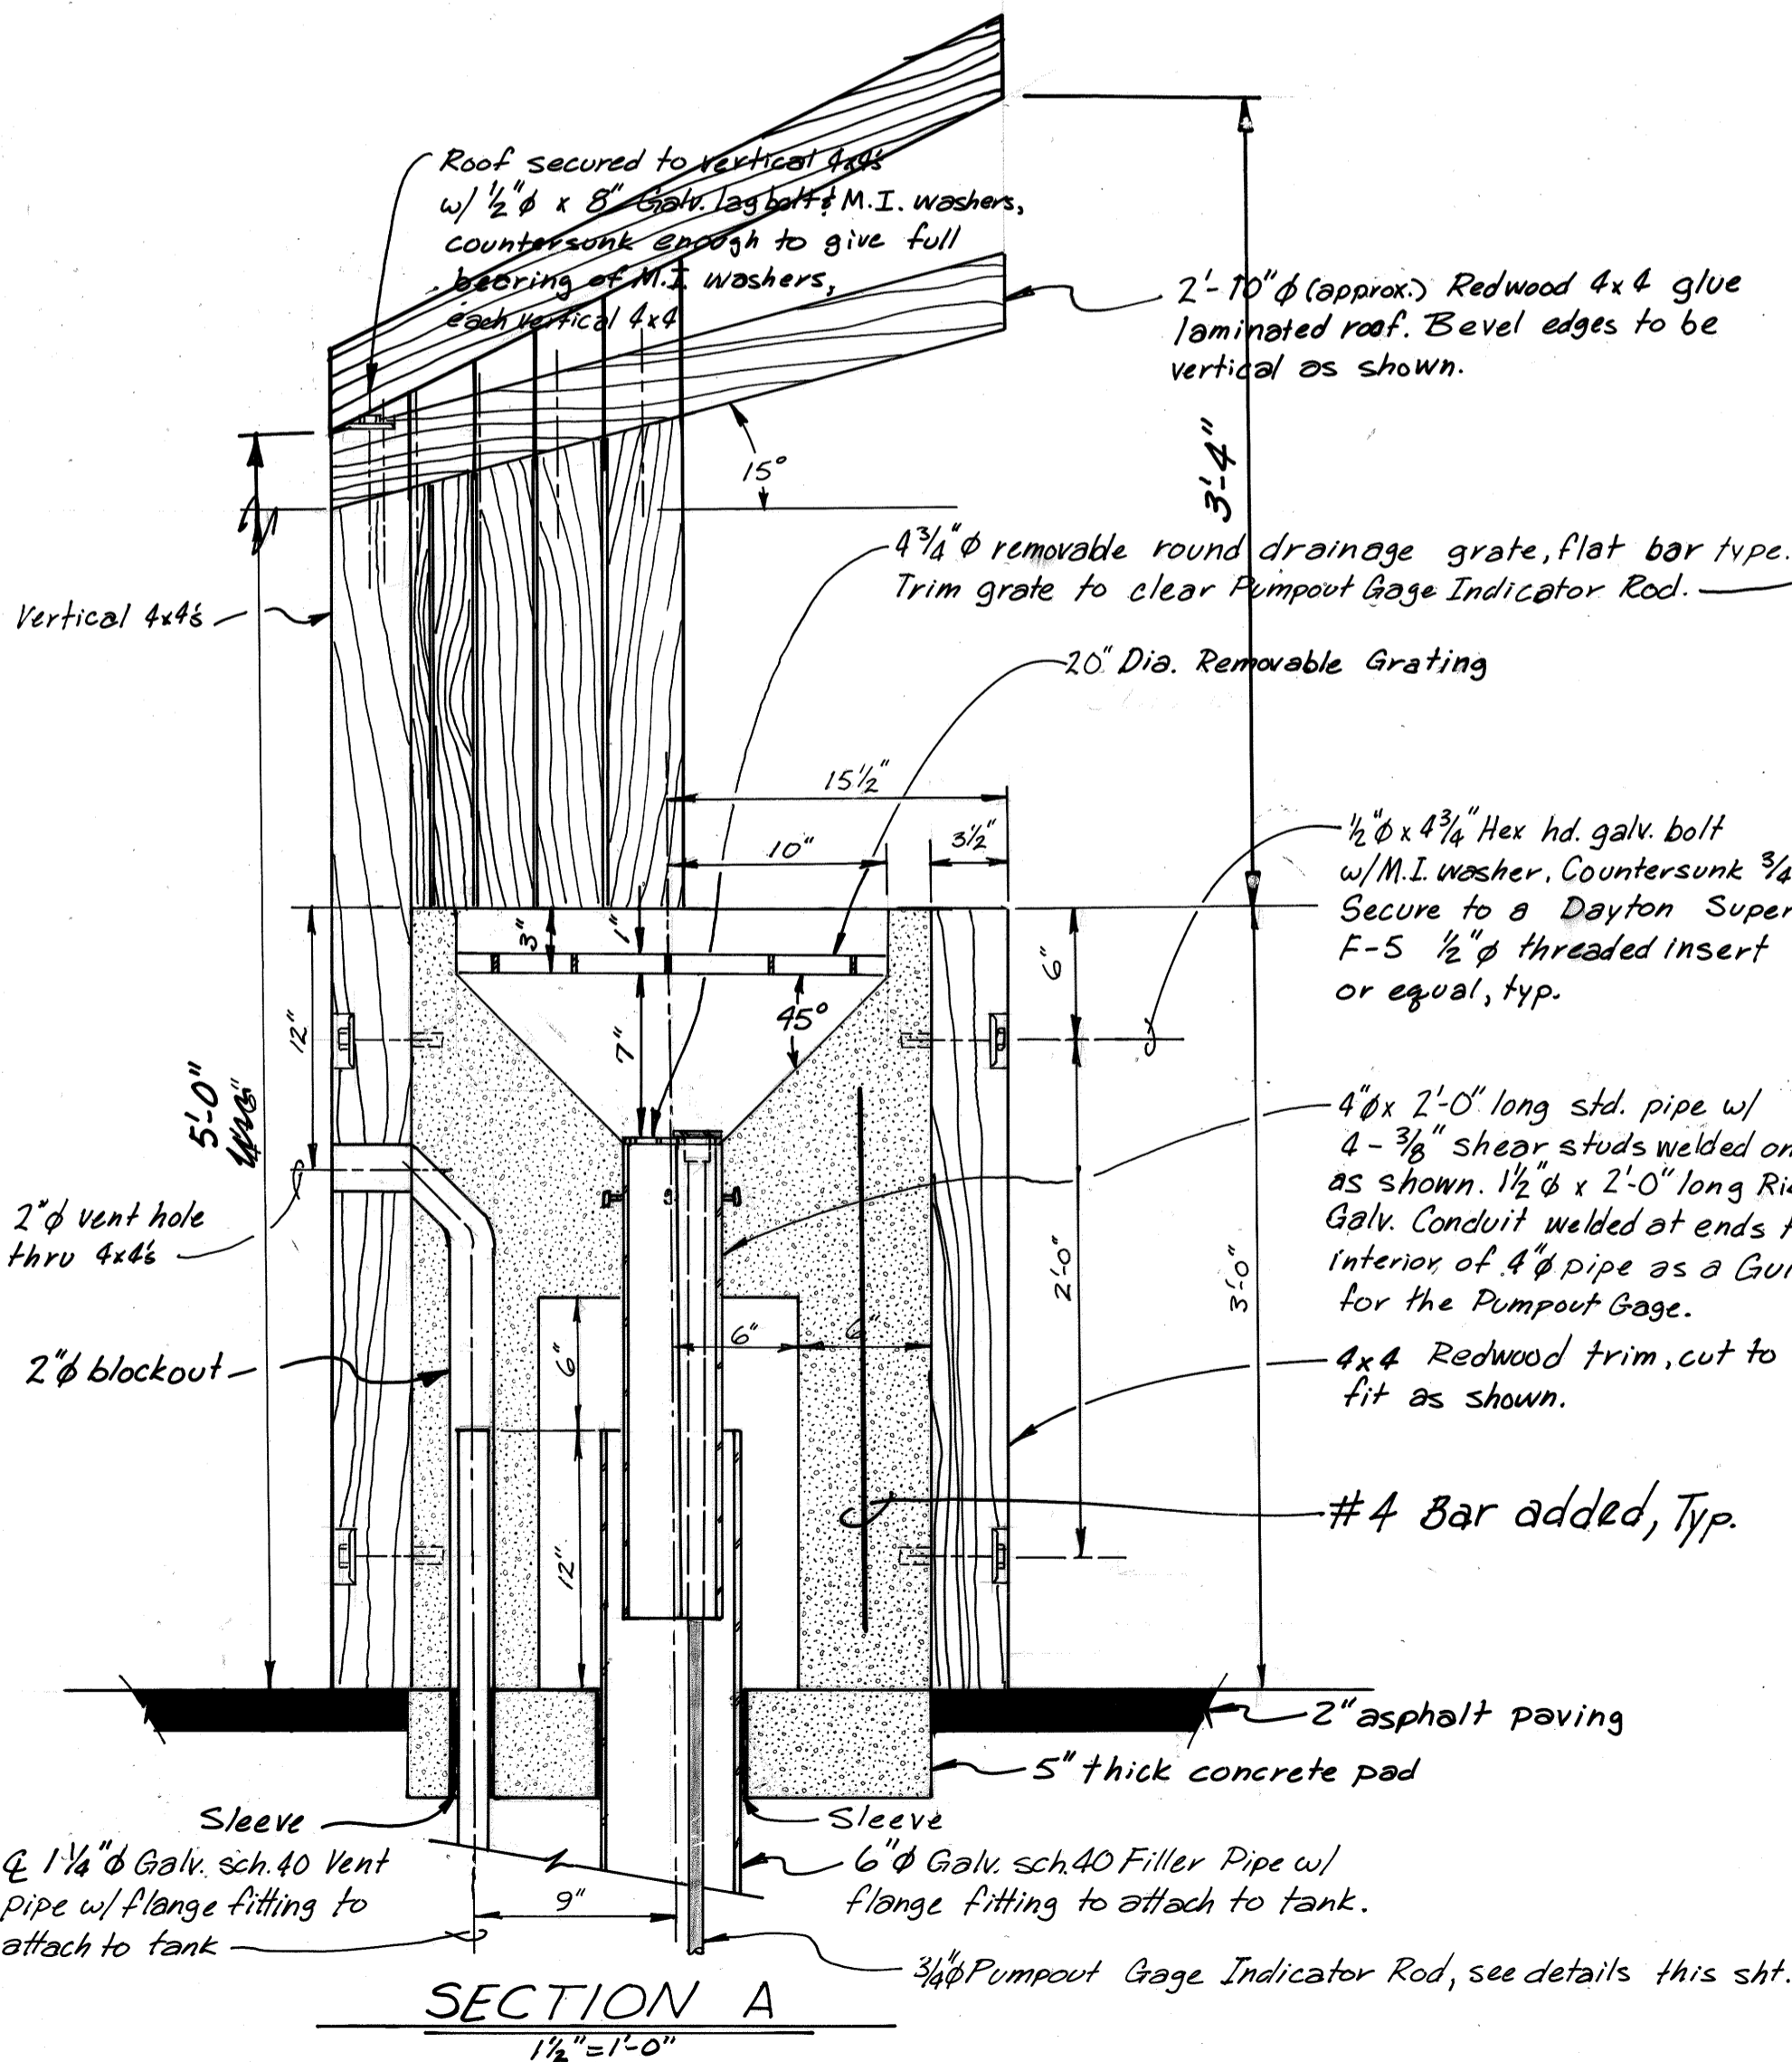 Roof secured to vertical 4x4's
w/ ½"ϕ x 8" Galv. lag bolt & M.I. washers,
countersunk enough to give full
bearing of M.I. washers,
each vertical 4x4
2'-10"ϕ (approx.) Redwood 4x4 glue
laminated roof. Bevel edges to be
vertical as shown.
15°
3'-4"
4¾"ϕ removable round drainage grate, flat bar type.
Trim grate to clear Pumpout Gage Indicator Rod.
Vertical 4x4's
20" Dia. Removable Grating
15½"
10"
3½"
½"ϕ x 4¾" Hex hd. galv. bolt
w/M.I. washer, Countersunk ¾
Secure to a Dayton Super
F-5 ½"ϕ threaded insert
or equal, typ.
3"
1"
6"
12"
7"
45°
5'-0"
4"ϕ x 2'-0" long std. pipe w/
4-⅜" shear studs welded on
as shown. 1½"ϕ x 2'-0" long
Galv. Conduit welded at ends
interior of 4"ϕ pipe as a
for the Pumpout Gage.
2"ϕ vent hole
thru 4x4's
2'-0"
3'-0"
6"
6"
6"
2"ϕ blockout
4x4 Redwood trim, cut to
fit as shown.
#4 Bar added, Typ.
12"
2" asphalt paving
5" thick concrete pad
Sleeve
Sleeve
℄ 1¼"ϕ Galv. sch. 40 Vent
pipe w/ flange fitting to
attach to tank
6"ϕ Galv. sch. 40 Filler Pipe w/
flange fitting to attach to tank.
9"
¾"ϕ Pumpout Gage Indicator Rod, see details this sht.
SECTION A
1½"=1'-0"